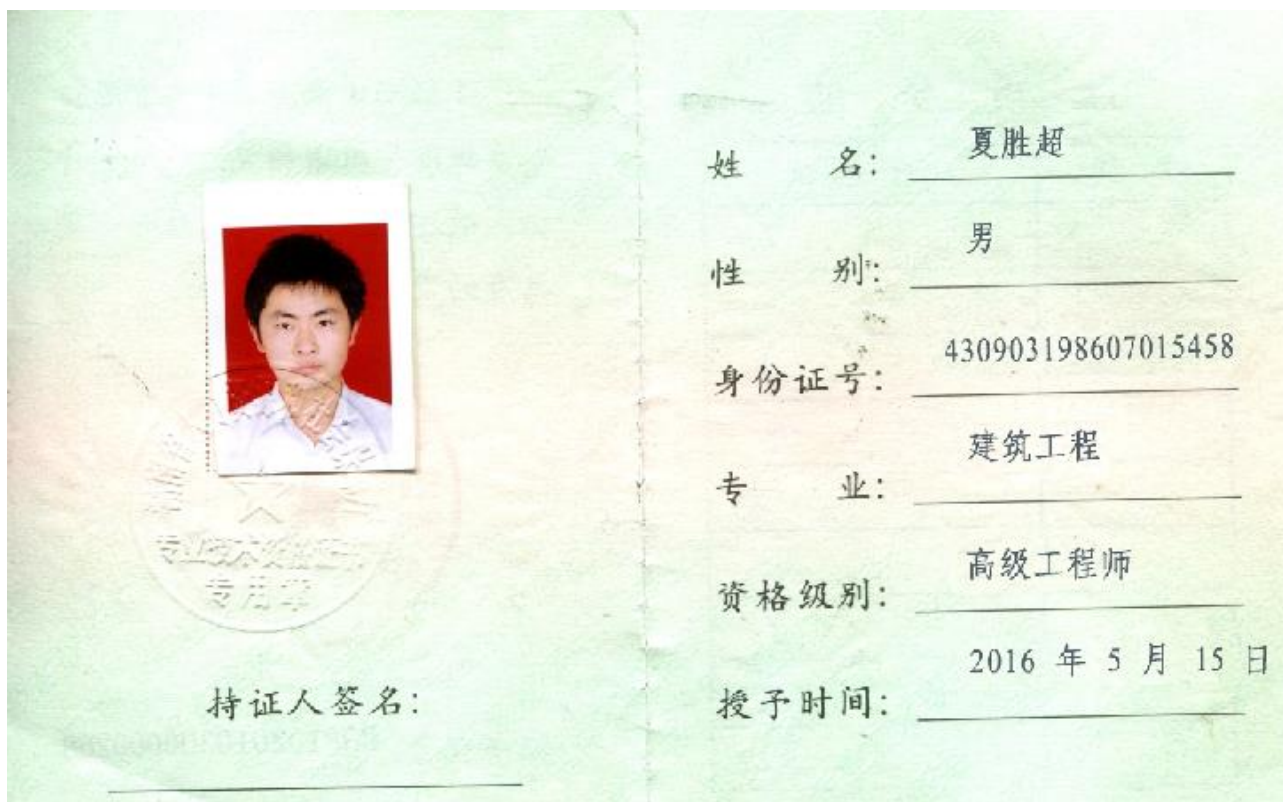 专用章
持证人签名：
姓 名： 夏胜超
性 别： 男
身份证号： 430903198607015458
专 业： 建筑工程
资格级别： 高级工程师
授予时间： 2016 年 5 月 15 日